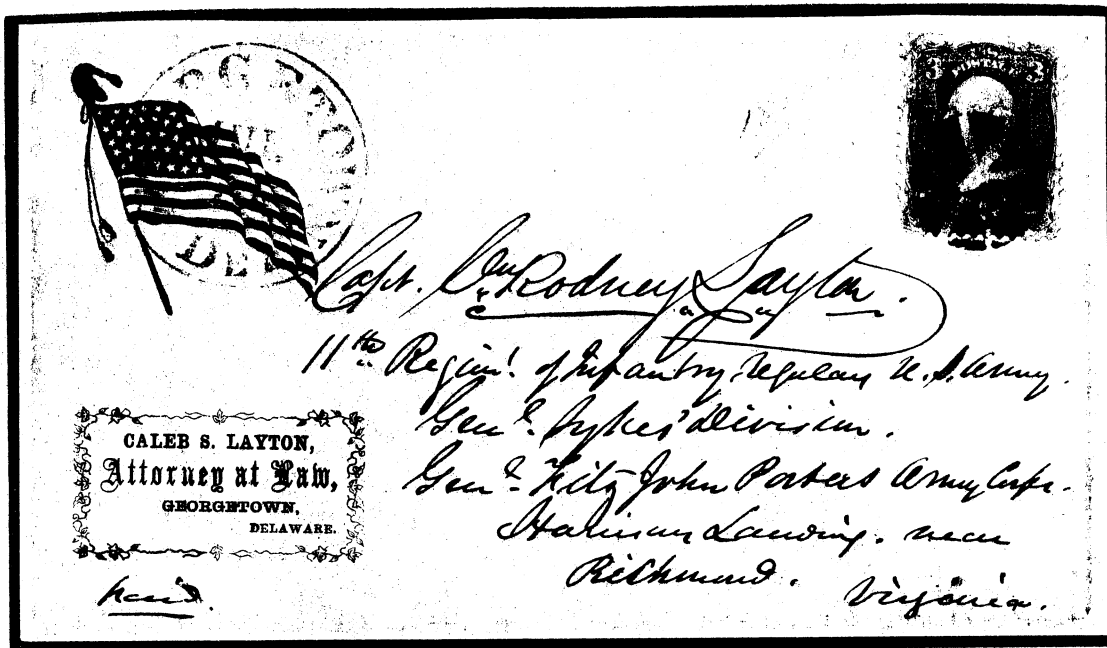 RGETOW
JUL
DEL
3 U.S. 3
POSTAGE
Capt. Wm Rodney Layton.
11th Regimt. of Infantry, regular U.S. Army.
Genl. Sykes' Division.
Genl. Fitz John Porters Army Corps.
Harrison Landing. near
Richmond. Virginia.
CALEB S. LAYTON,
Attorney at Law,
GEORGETOWN,
DELAWARE.
Paid.